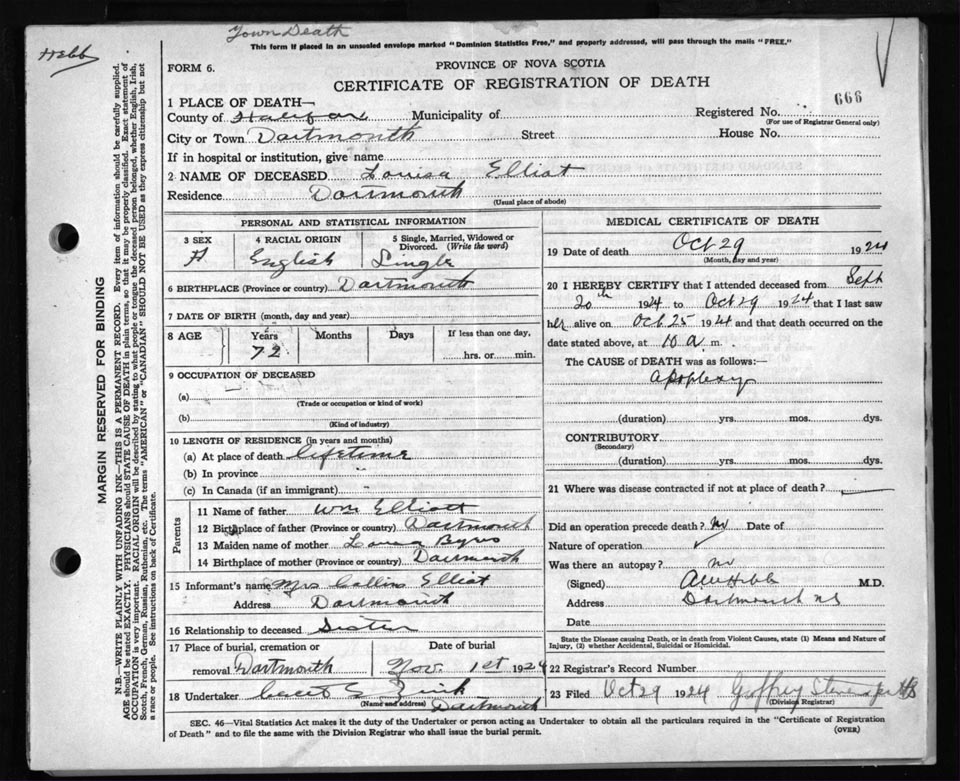 Town Death
Webb
This form if placed in an unsealed envelope marked "Dominion Statistics Free," and properly addressed, will pass through the mails "FREE."
FORM 6.
PROVINCE OF NOVA SCOTIA
CERTIFICATE OF REGISTRATION OF DEATH
666
1 PLACE OF DEATH—
County of Halifax Municipality of Registered No.
(For use of Registrar General only)
City or Town Dartmouth Street House No.
If in hospital or institution, give name
2 NAME OF DECEASED Louisa Elliot
Residence Dartmouth
(Usual place of abode)
PERSONAL AND STATISTICAL INFORMATION
3 SEX 4 RACIAL ORIGIN 5 Single, Married, Widowed or Divorced. (Write the word)
F English Single
6 BIRTHPLACE (Province or country) Dartmouth
7 DATE OF BIRTH (month, day and year)
8 AGE Years Months Days If less than one day,
72 hrs. or min.
9 OCCUPATION OF DECEASED
(a)
(Trade or occupation or kind of work)
(b)
(Kind of industry)
10 LENGTH OF RESIDENCE (in years and months)
(a) At place of death lifetime
(b) In province
(c) In Canada (if an immigrant)
Parents
11 Name of father Wm Elliott
12 Birthplace of father (Province or country) Dartmouth
13 Maiden name of mother Louisa
14 Birthplace of mother (Province or country) Dartmouth
15 Informant's name Mrs Collins Elliot
Address Dartmouth
16 Relationship to deceased Sister
17 Place of burial, cremation or
removal Dartmouth Nov 1st 1924
18 Undertaker Zink
(Name and address) Dartmouth
MEDICAL CERTIFICATE OF DEATH
19 Date of death Oct 29 1924
(Month, day and year)
20 I HEREBY CERTIFY that I attended deceased from Sept
20th 1924 to Oct 29 1924 that I last saw
her alive on Oct 25 1924 and that death occurred on the
date stated above, at 10 a m.
The CAUSE of DEATH was as follows:—
Apoplexy
(duration) yrs. mos. dys.
CONTRIBUTORY
(Secondary)
(duration) yrs. mos. dys.
21 Where was disease contracted if not at place of death?
Did an operation precede death? No Date of
Nature of operation
Was there an autopsy? no
(Signed) M.D.
Address Dartmouth NS
Date
State the Disease causing Death, or in death from Violent Causes, state (1) Means and Nature of
Injury, (2) whether Accidental, Suicidal or Homicidal.
22 Registrar's Record Number
23 Filed Oct 29 1924
(Division Registrar)
SEC. 46—Vital Statistics Act makes it the duty of the Undertaker or person acting as Undertaker to obtain all the particulars required in the "Certificate of Registration
of Death" and to file the same with the Division Registrar who shall issue the burial permit.
(OVER)
MARGIN RESERVED FOR BINDING
N.B.—WRITE PLAINLY WITH UNFADING INK—THIS IS A PERMANENT RECORD. Every item of information should be carefully supplied.
AGE should be stated EXACTLY. PHYSICIANS should STATE CAUSE OF DEATH in plain terms, so that it may be properly classified. Exact statement of
OCCUPATION is very important. RACIAL ORIGIN will be described by stating to what people or tongue the deceased person belonged, whether English, Irish,
Scotch, French, German, Russian, Ruthenian, etc. The terms "AMERICAN" or "CANADIAN" SHOULD NOT BE USED as they express citizenship but not
a race or people. See instructions on back of Certificate.